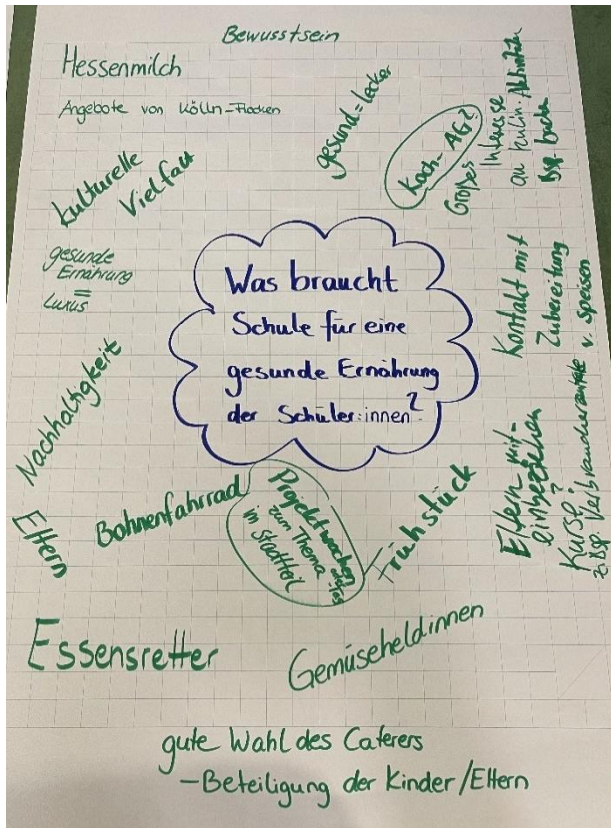 Bewusstsein
Hessenmilch
Angebote von Kölln-Flocken
gesund = lecker
Koch-AG?
Großes
Interesse
an kulin. Aktivitäten
bsp. backen
kulturelle
Vielfalt
gesunde
Ernährung
=
Luxus
Was braucht
Schule für eine
gesunde Ernährung
der Schüler:innen?
Kontakt mit
Zubereitung
v. Speisen
Nachhaltigkeit
Eltern
Bohnenfahrrad
Projektwochen
zum Thema
im Stadtteil
Frühstück
Eltern mit-
einbeziehen
Kurse?
z. Bsp. Verbraucherzentrale
Essensretter
Gemüseheldinnen
gute Wahl des Caterers
- Beteiligung der Kinder/Eltern